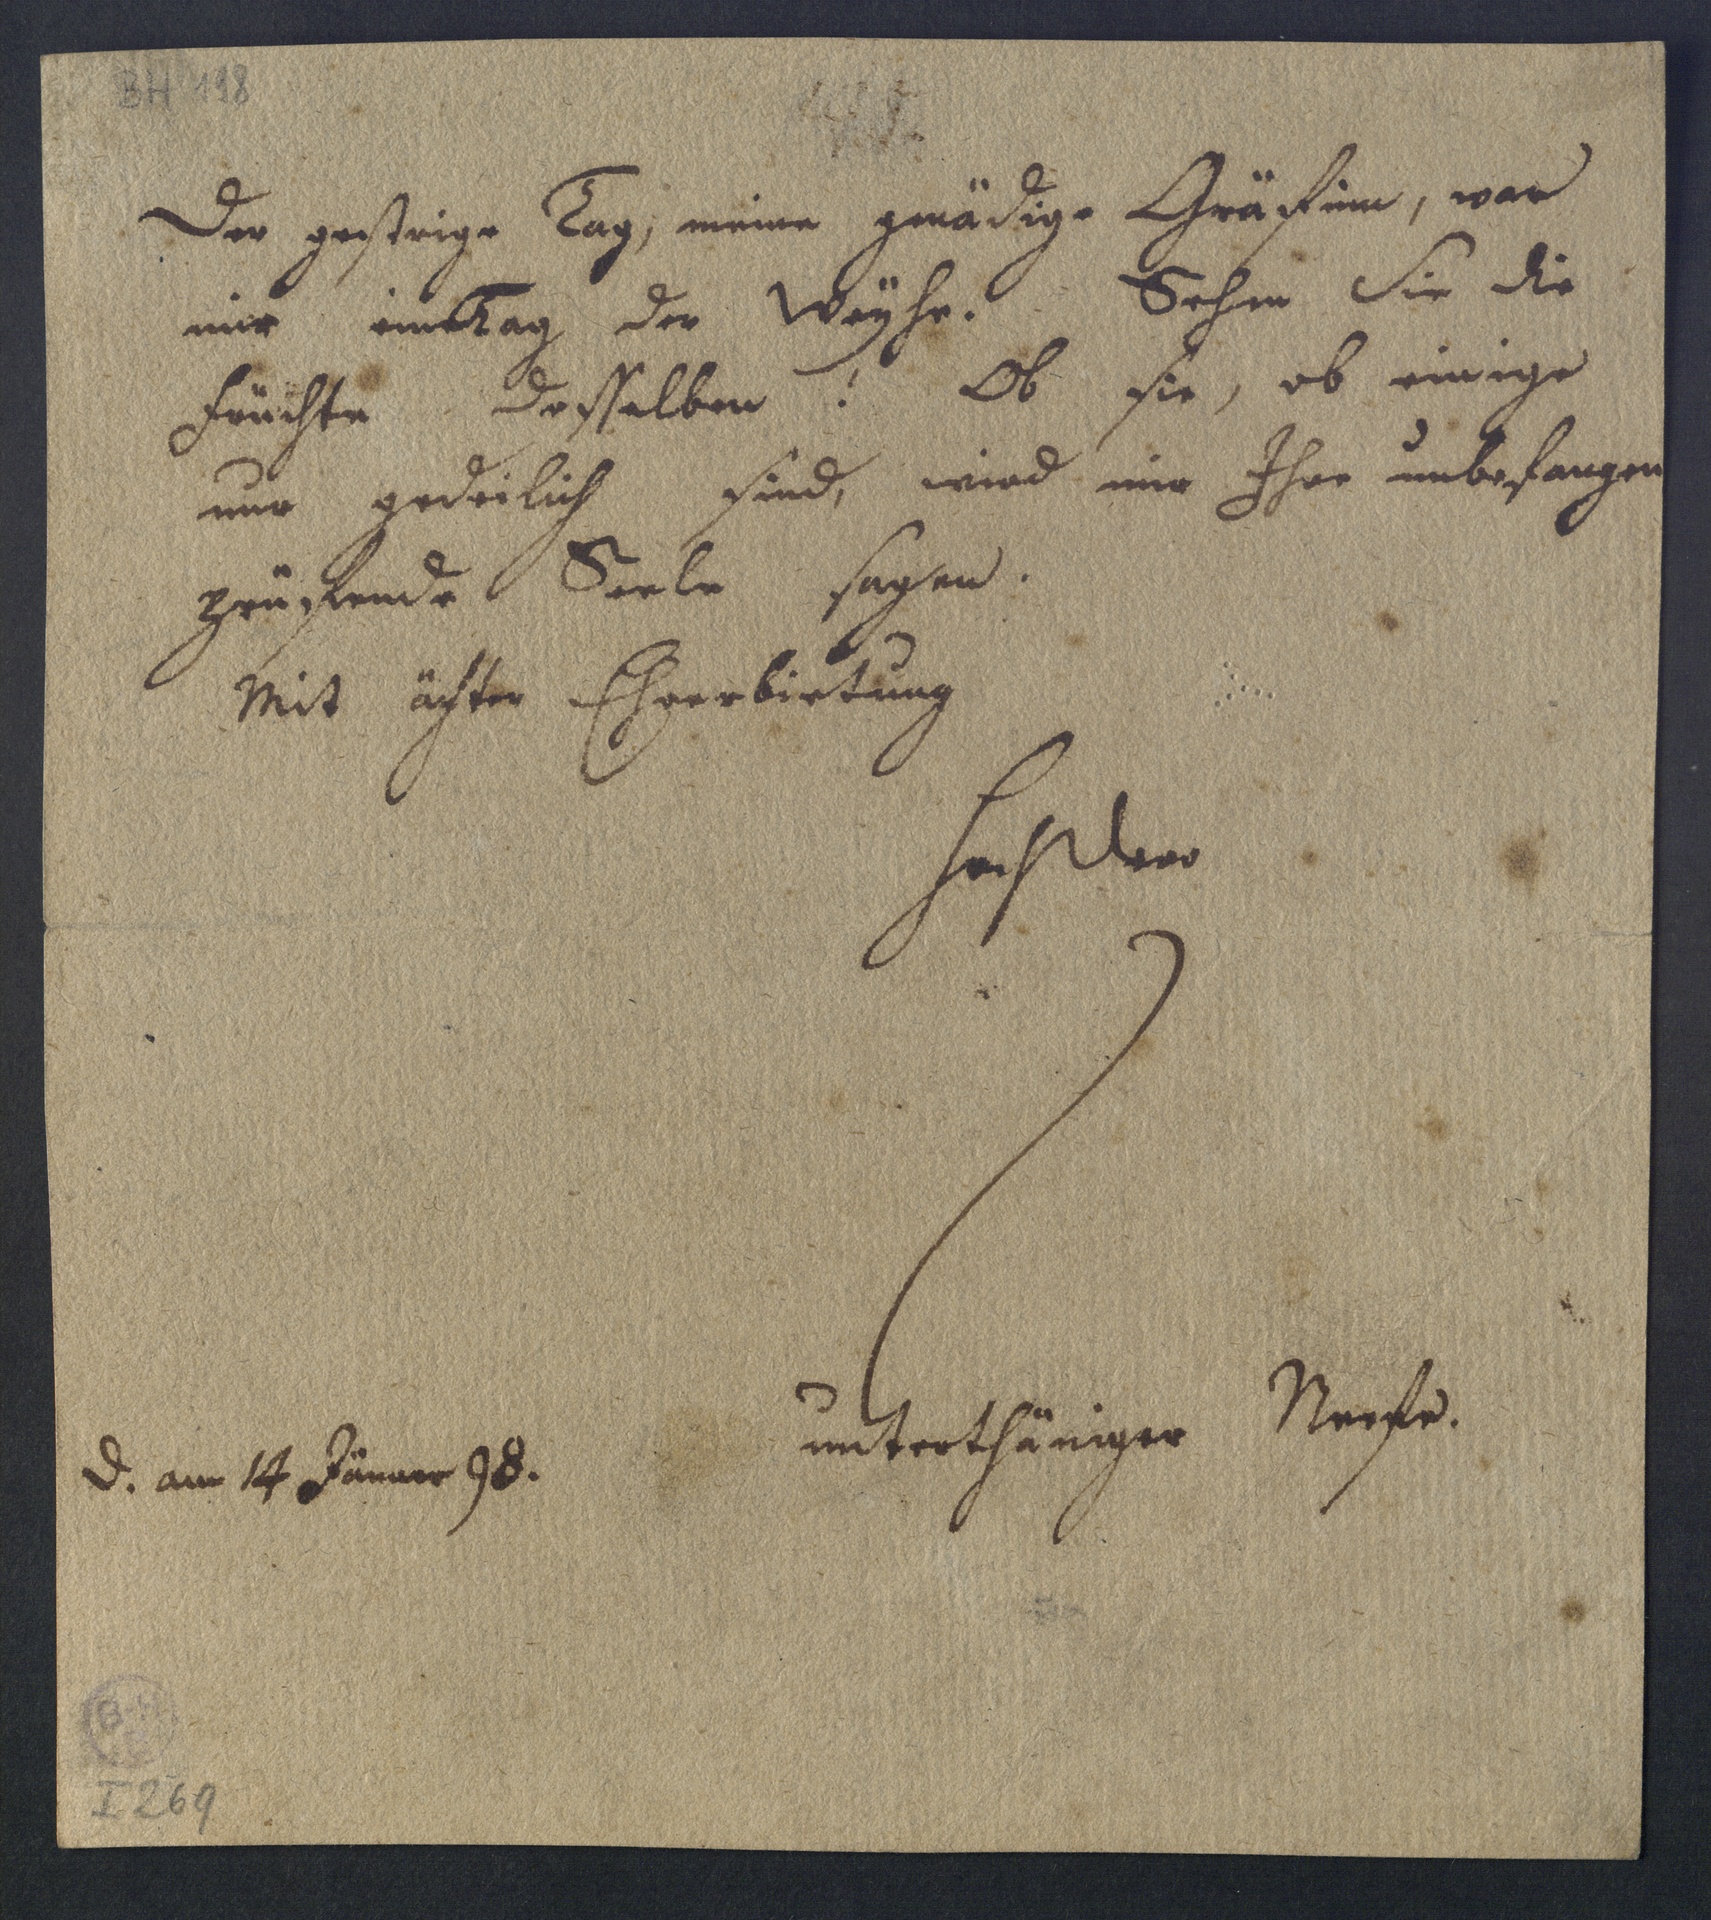 BH 118
Der gestrige Tag, meine gnädige Gräfinn, war
mir ein Tag der Weÿhe. Sehen Sie die
Früchte desselben! Ob sie, ob einige
nur gedeilich sind, wird mir Ihre unbefangen
prüfende Seele sagen.
Mit ächter Ehrerbietung
Hochdero
unterthäniger Neefe.
D. am 14 Jänner 98.
I 269